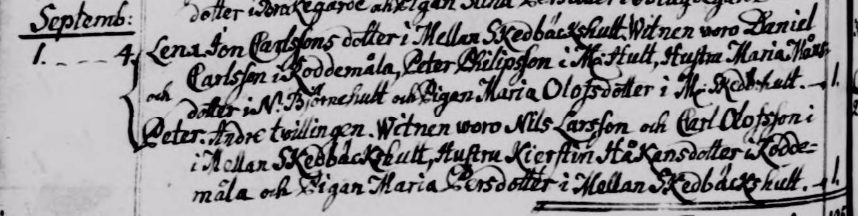 dotter i Brakegärde och Pigan Stina Persdotter i
Septemb:
1. - - - - 4. Lena Jon Carlssons dotter i Mellan Skedbäckshult. Witnen woro Daniel
Carlsson i Koddemåla, Peter Philipsson i M: Hult, Hustru Maria Måns-
och dotter i N. Björnehult och Pigan Maria Olofsdotter i M. Skedb:hult. - 1.
Peter. Andre tvillingen. Witnen woro Nils Larsson och Carl Olofsson i
i Mellan Skedbäckshult, Hustru Kierstin Håkansdotter i Kodde=
måla och Pigan Maria Persdotter i Mellan Skedbäckshult. - 1.